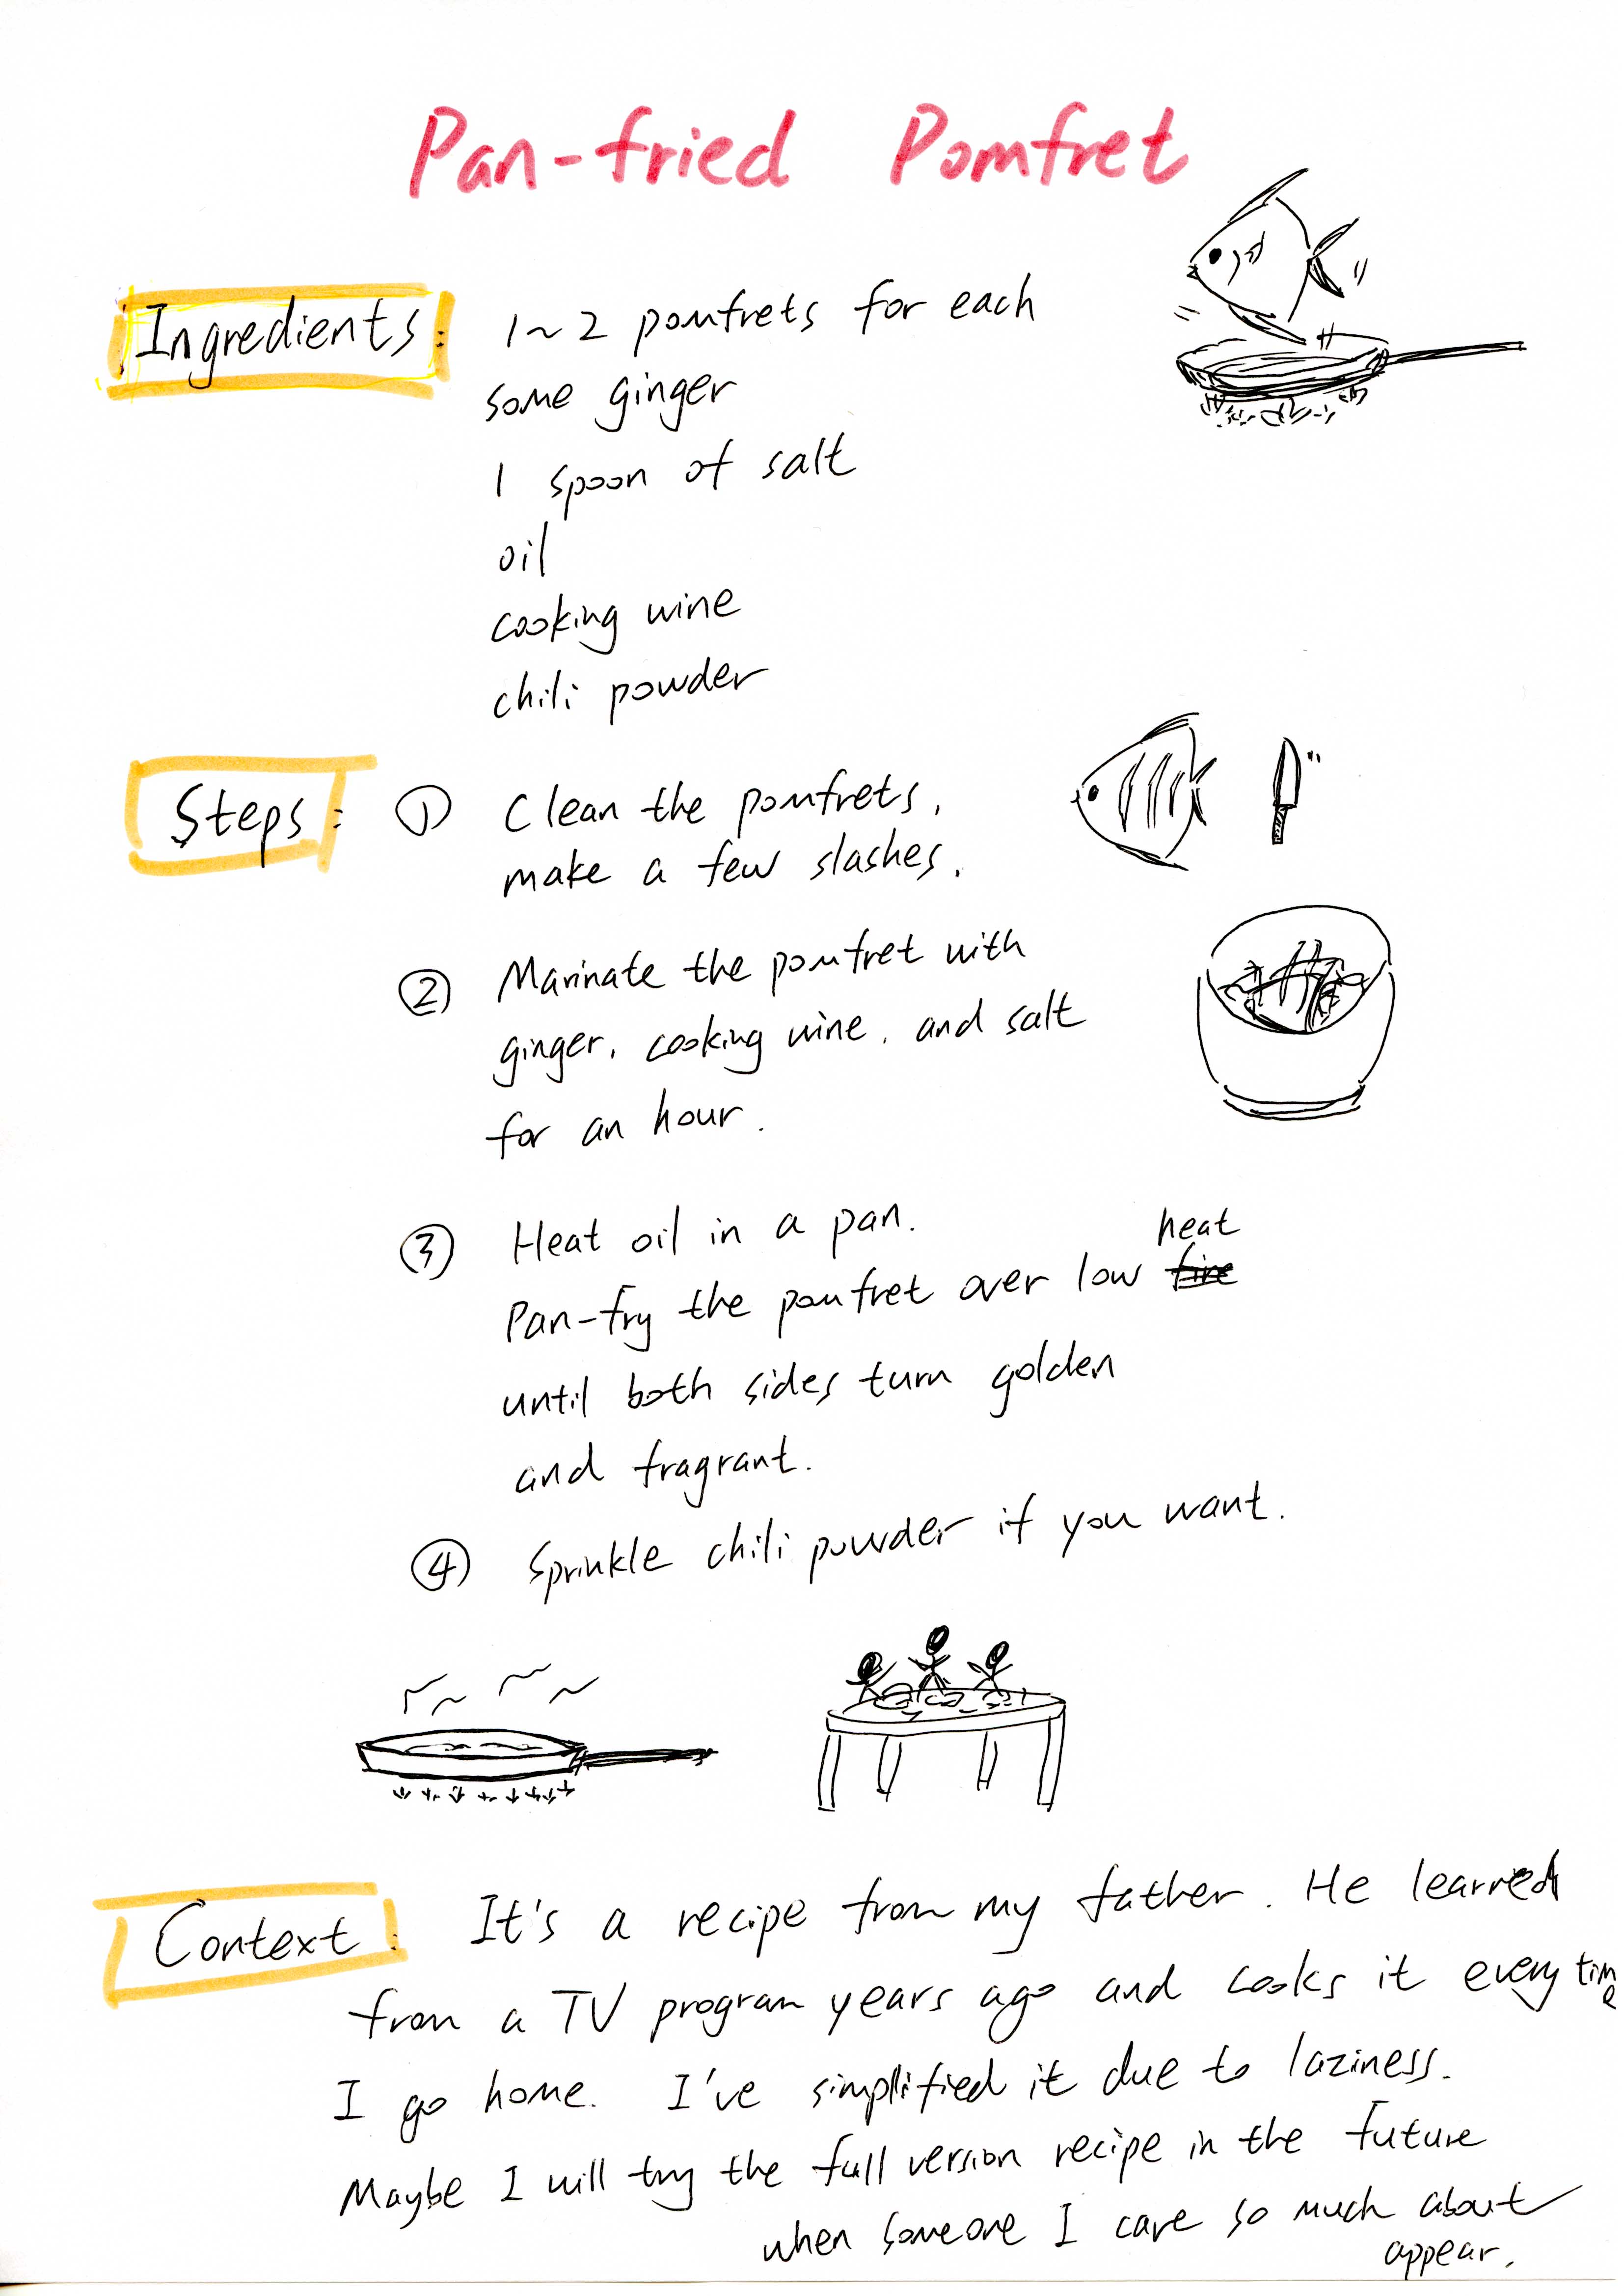 Pan-fried Pomfret
Ingredients: 1~2 pomfrets for each
some ginger
1 spoon of salt
oil
cooking wine
chili powder
Steps: ① Clean the pomfrets,
make a few slashes.
② Marinate the pomfret with
ginger, cooking wine, and salt
for an hour.
③ Heat oil in a pan.
heat
Pan-fry the pomfret over low fire
until both sides turn golden
and fragrant.
④ Sprinkle chili powder if you want.
Context: It's a recipe from my father. He learned
from a TV program years ago and cooks it every time
I go home. I've simplified it due to laziness.
Maybe I will try the full version recipe in the future
when someone I care so much about
appear.